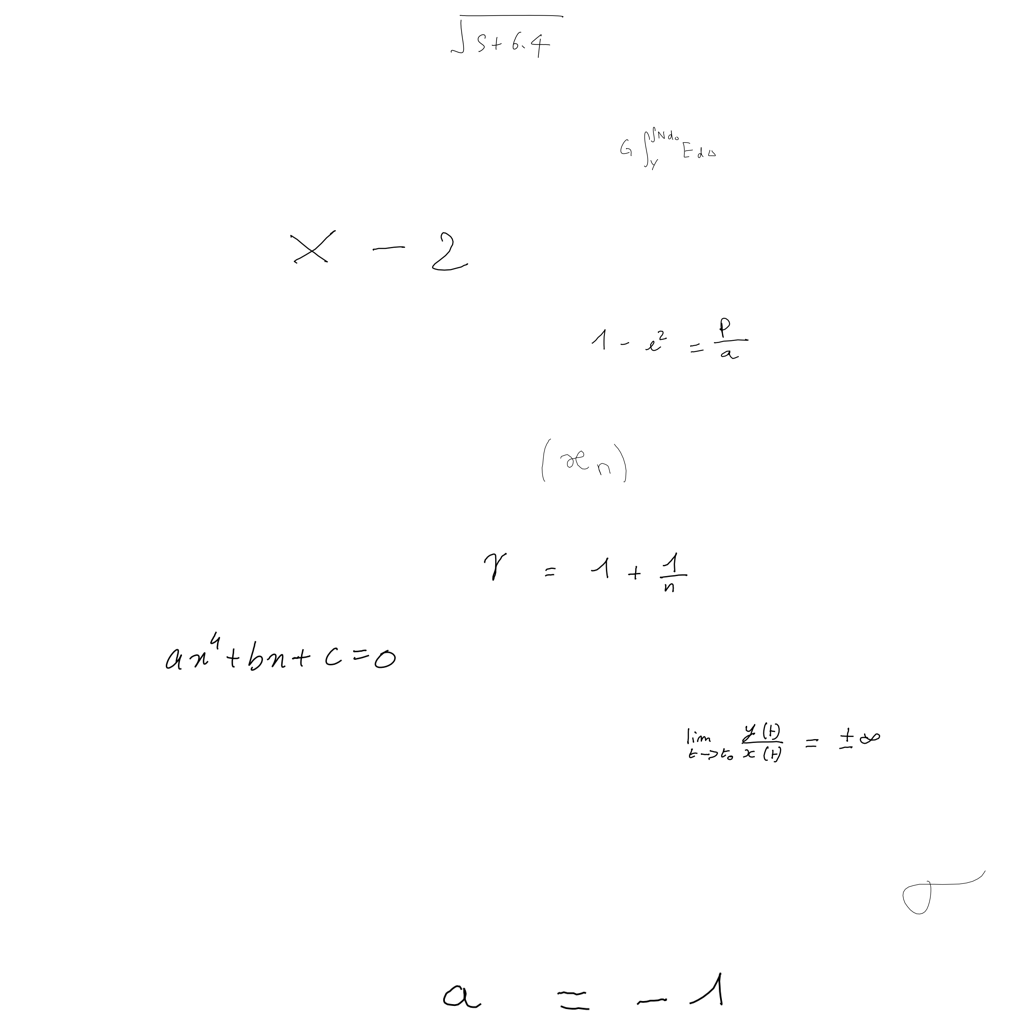 \sqrt{s+6.4}
G \int_{Y}^{\int N d_{0}} E d \Delta
x - 2
1 - e^{2} = \frac{p}{a}
(x_{n})
\gamma = 1 + \frac{1}{n}
ax^{4} + bx + c = 0
\lim_{t \to t_{0}} \frac{y(t)}{x(t)} = \pm \infty
\sigma
a = -1